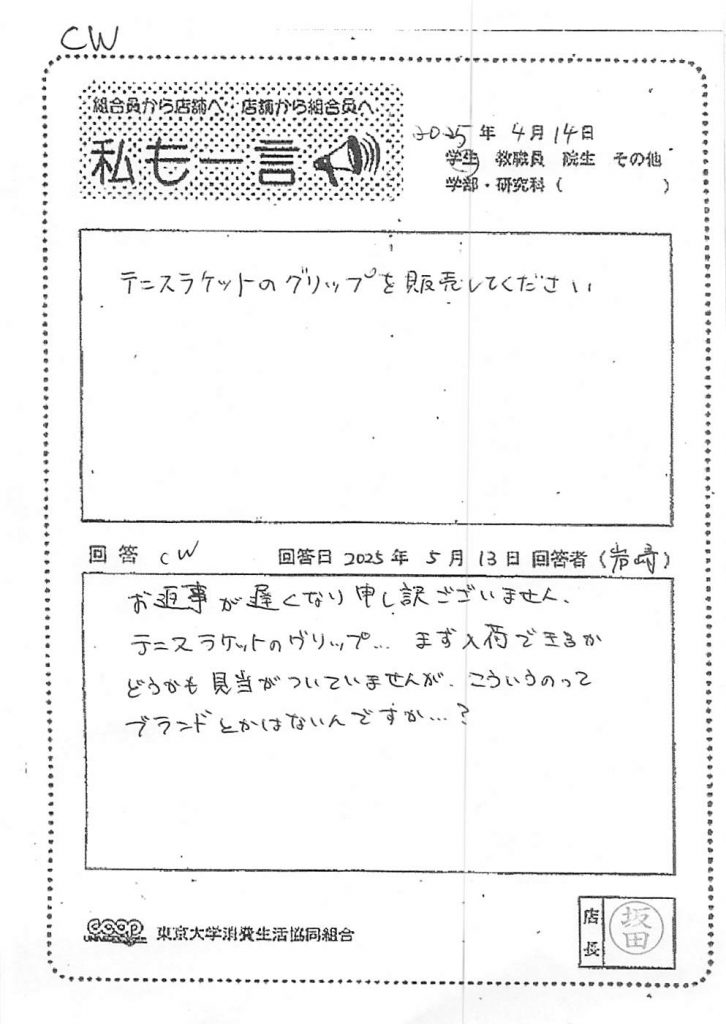 CW
組合員から店舗へ・店舗から組合員へ
私も一言
2025年 4月 14日
学生 教職員 院生 その他
学部・研究科（ ）
テニスラケットのグリップを販売してください
回答 CW 回答日 2025年 5月 13日 回答者（岩崎）
お返事が遅くなり申し訳ございません、
テニスラケットのグリップ… まず入荷できるか
どうかも見当がついていませんが、こういうのって
ブランドとかはないんですか…？
coop
東京大学消費生活協同組合
店長
坂田